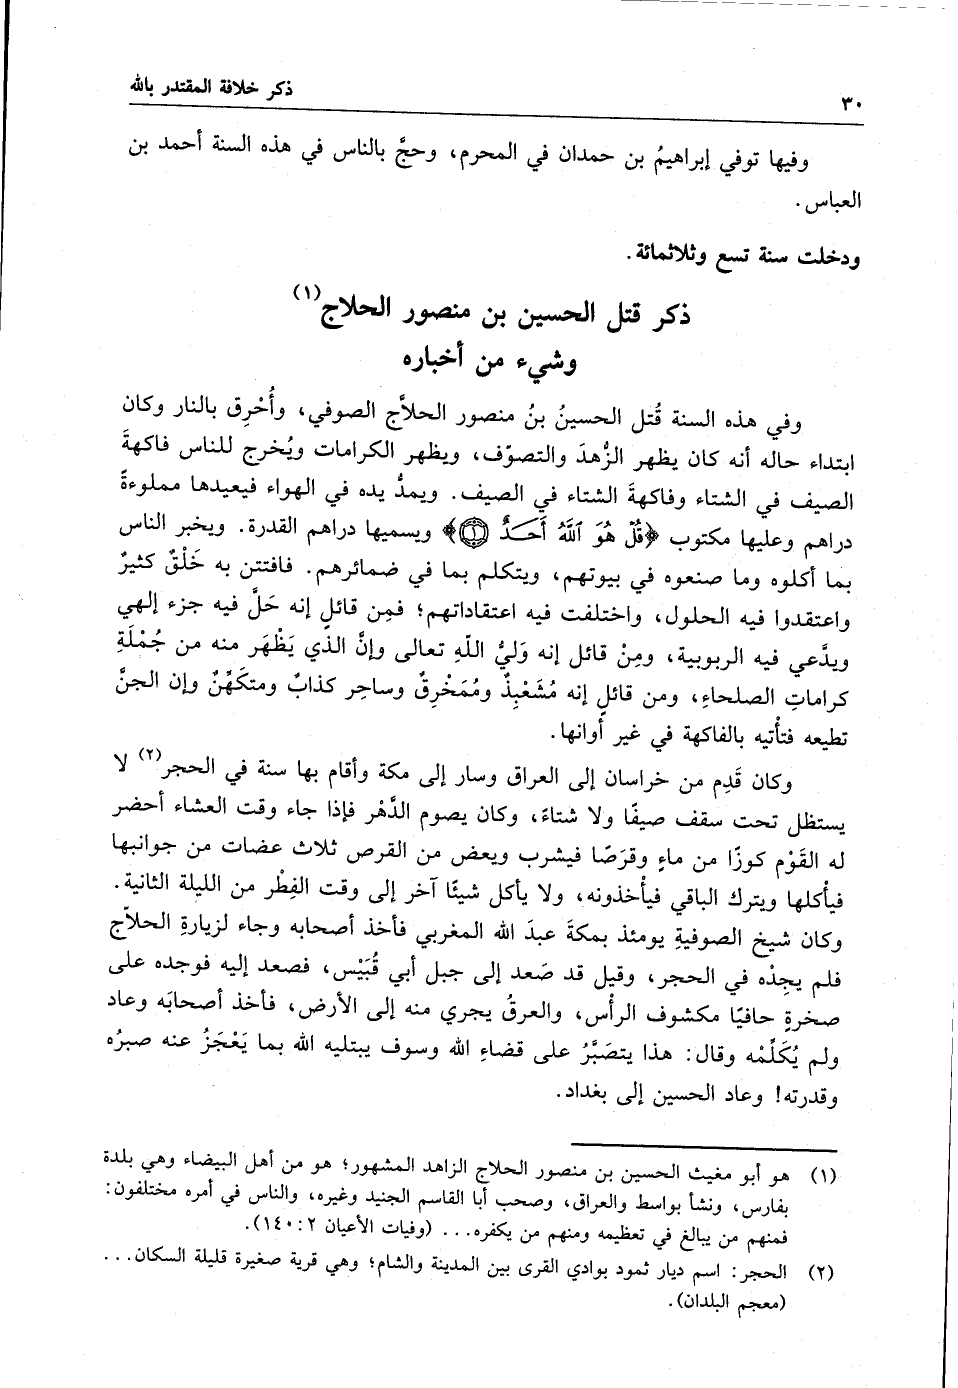 ٣٠ ذكر خلافة المقتدر بالله
وفيها توفي إبراهيمُ بن حمدان في المحرم، وحجَّ بالناس في هذه السنة أحمد بن
العباس.
ودخلت سنة تسع وثلاثمائة.
ذكر قتل الحسين بن منصور الحلاج(١)
وشيء من أخباره
وفي هذه السنة قُتل الحسينُ بنُ منصور الحلاَّج الصوفي، وأُحْرِق بالنار وكان
ابتداء حاله أنه كان يظهر الزُّهدَ والتصوّف، ويظهر الكرامات ويُخرج للناس فاكهةَ
الصيف في الشتاء وفاكهةَ الشتاء في الصيف. ويمدُّ يده في الهواء فيعيدها مملوءةً
دراهم وعليها مكتوب ﴿قُلْ هُوَ ٱللَّهُ أَحَدٌ ۝١﴾ ويسميها دراهم القدرة. ويخبر الناس
بما أكلوه وما صنعوه في بيوتهم، ويتكلم بما في ضمائرهم. فافتتن به خَلْقٌ كثيرٌ
واعتقدوا فيه الحلول، واختلفت فيه اعتقاداتهم؛ فمِن قائلٍ إنه حَلَّ فيه جزء إلهي
ويدَّعي فيه الربوبية، ومِنْ قائل إنه وَليُّ اللّهِ تعالى وإنَّ الذي يَظْهَر منه من جُمْلَةِ
كراماتِ الصلحاءِ، ومن قائلٍ إنه مُشَعْبِذٌ ومُمَخْرِقٌ وساحِر كذابٌ ومتكَهِّنٌ وإن الجنَّ
تطيعه فتأْتيه بالفاكهة في غير أوانها.
وكان قَدِم من خراسان إلى العراق وسار إلى مكة وأقام بها سنة في الحجر(٢) لا
يستظل تحت سقف صيفًا ولا شتاءً، وكان يصوم الدَّهْر فإذا جاء وقت العشاء أحضر
له القَوْم كوزًا من ماءٍ وقرَصًا فيشرب ويعض من القرص ثلاث عضات من جوانبها
فيأكلها ويترك الباقي فيأخذونه، ولا يأكل شيئًا آخر إلى وقت الفِطْر من الليلة الثانية.
وكان شيخ الصوفيةِ يومئذ بمكةَ عبدَ الله المغربي فأخذ أصحابه وجاء لزيارةِ الحلاَّج
فلم يجِدْه في الحجر، وقيل قد صَعد إلى جبل أبي قُبَيْس، فصعد إليه فوجده على
صخرةٍ حافيًا مكشوف الرأْس، والعرقُ يجري منه إلى الأرض، فأخذ أصحابَه وعاد
ولم يُكَلِّمْه وقال: هذا يتصَبَّرُ على قضاءِ الله وسوف يبتليه الله بما يَعْجَزُ عنه صبرُه
وقدرته! وعاد الحسين إلى بغداد.
(١) هو أبو مغيث الحسين بن منصور الحلاج الزاهد المشهور؛ هو من أهل البيضاء وهي بلدة
بفارس، ونشأ بواسط والعراق، وصحب أبا القاسم الجنيد وغيره، والناس في أمره مختلفون:
فمنهم من يبالغ في تعظيمه ومنهم من يكفره... (وفيات الأعيان ٢: ١٤٠).
(٢) الحجر: اسم ديار ثمود بوادي القرى بين المدينة والشام؛ وهي قرية صغيرة قليلة السكان...
(معجم البلدان).